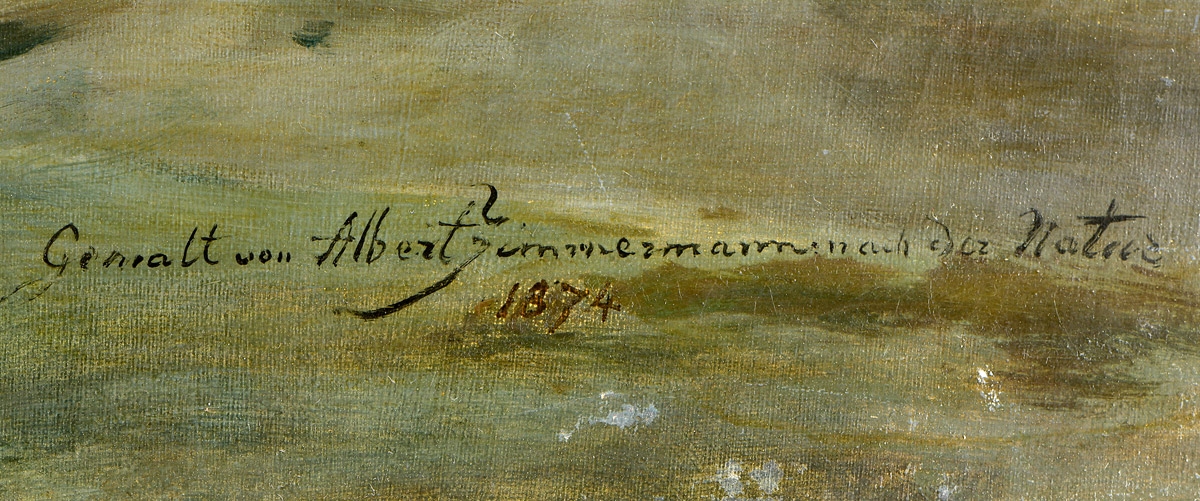 Gemalt von Albert Zimmermann nach der Natur
1874